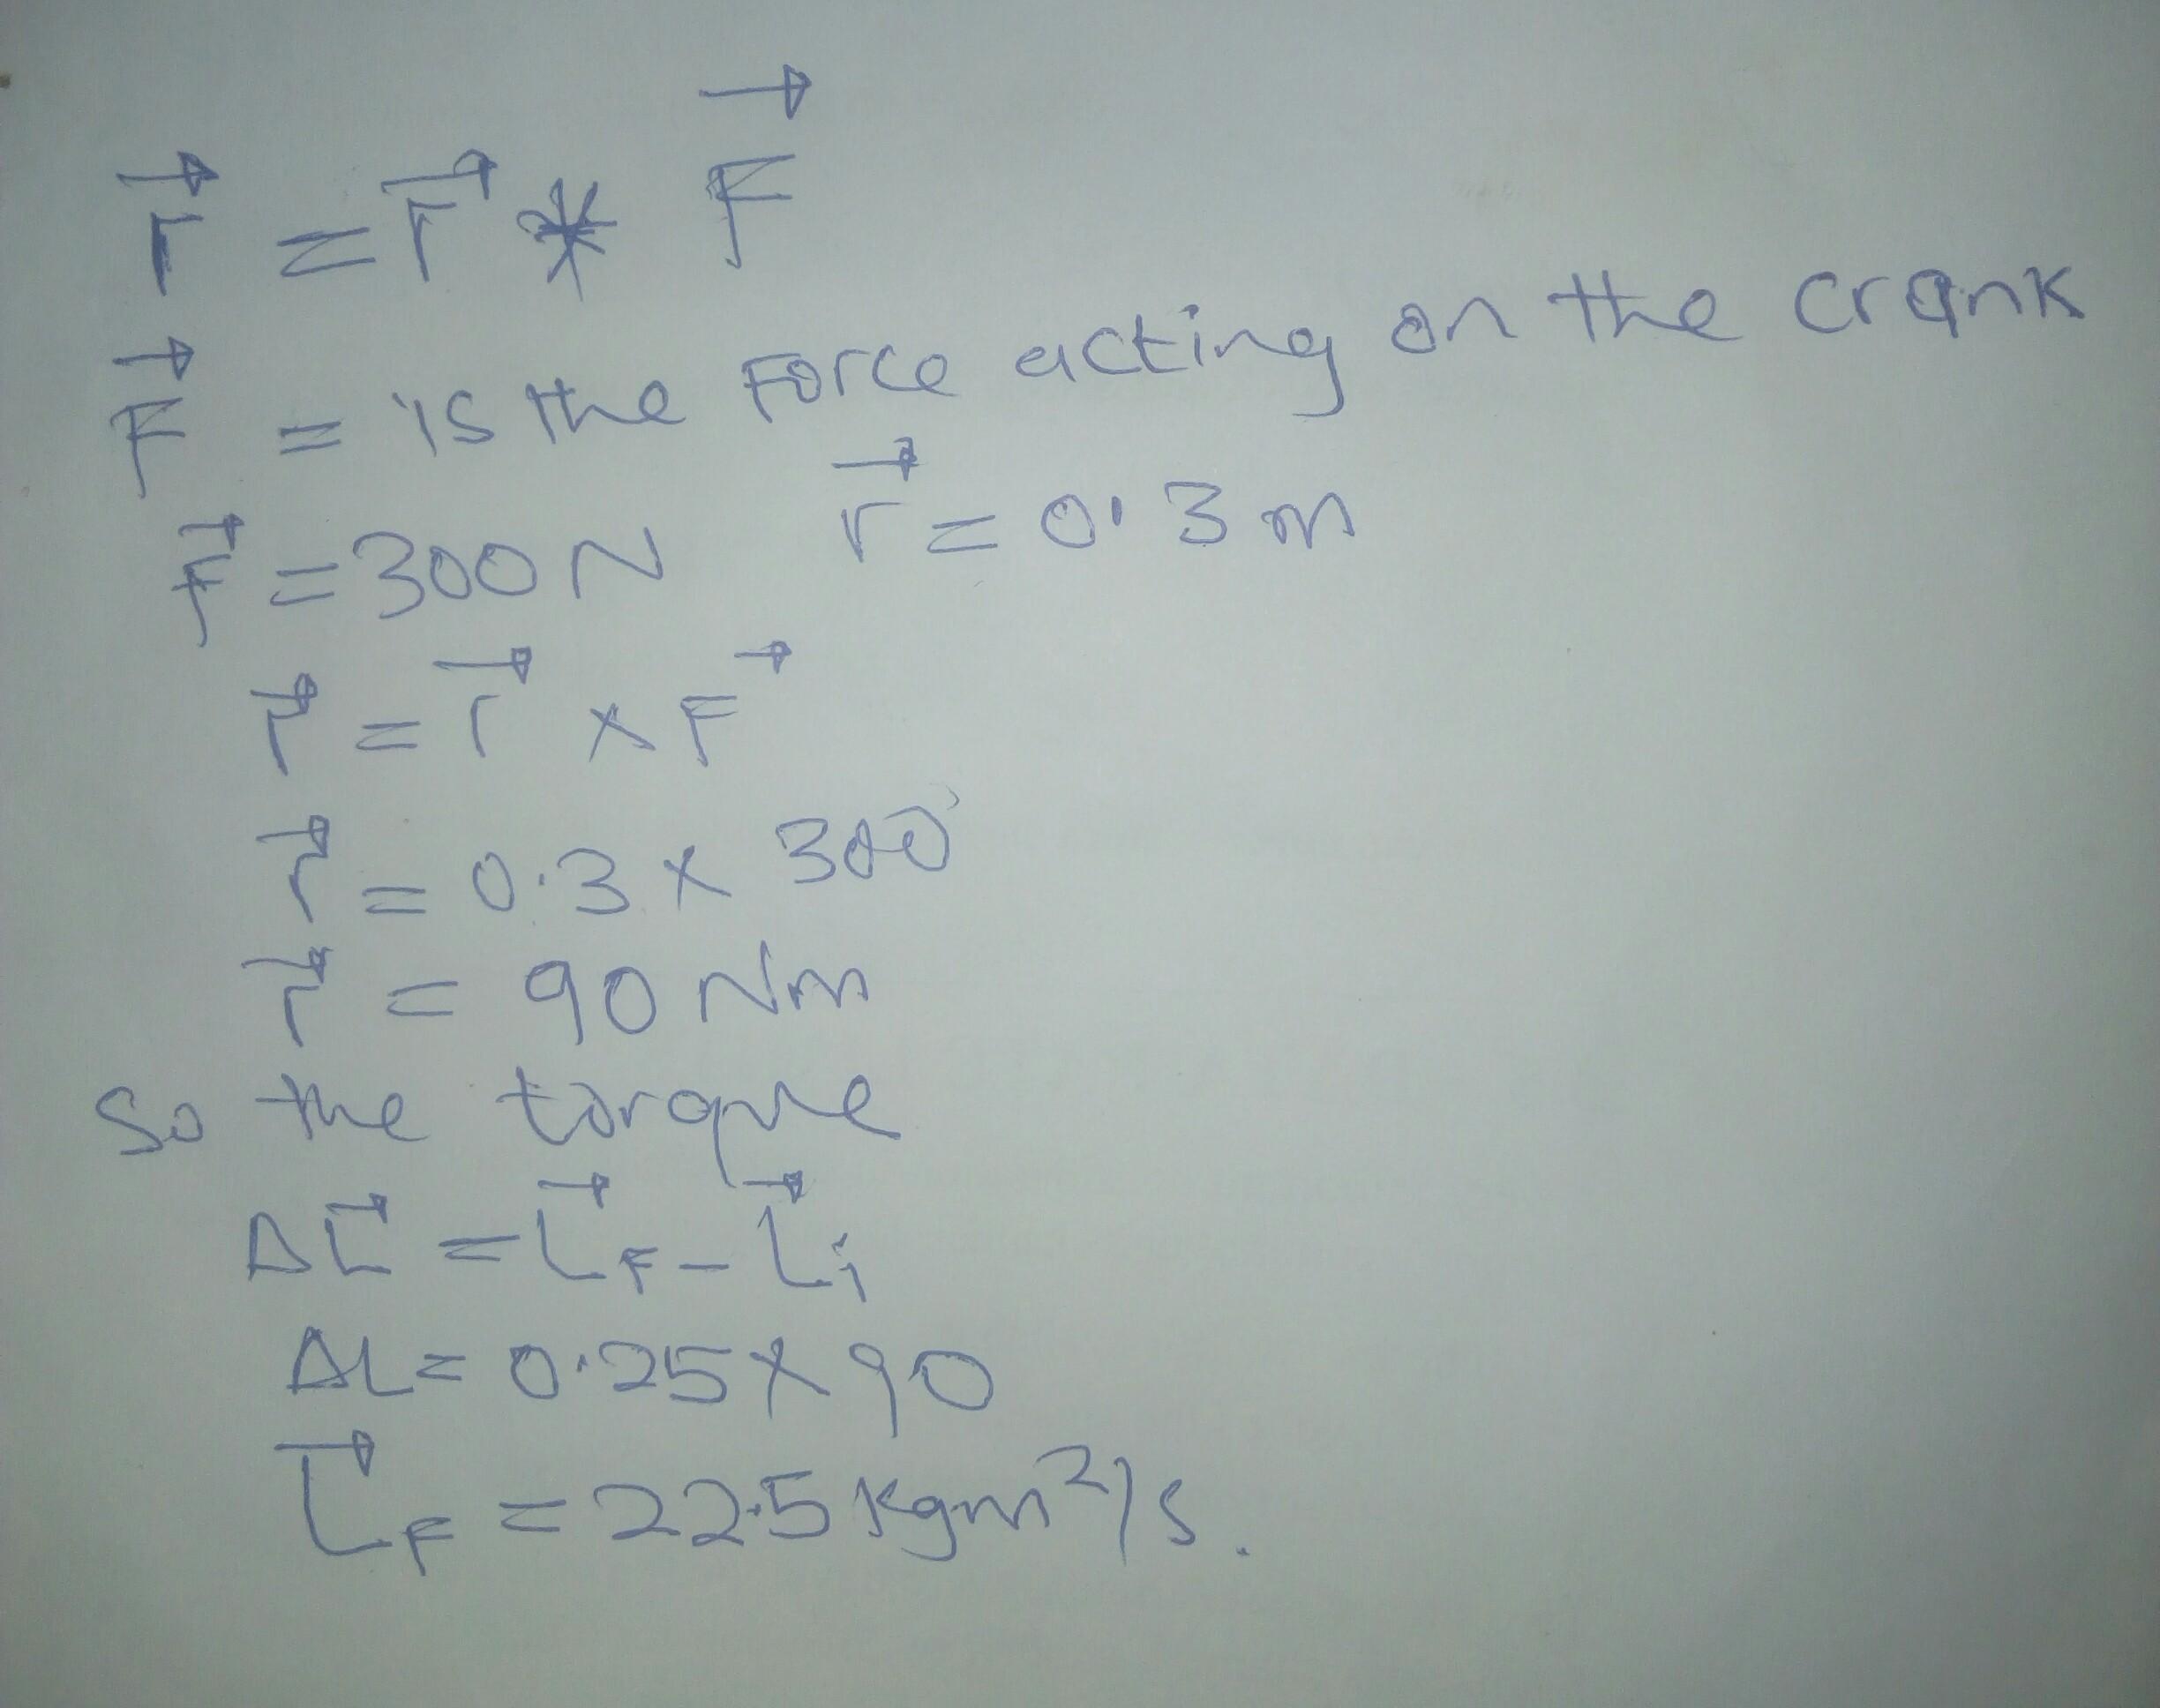 τ⃗ = r⃗ * F⃗
F⃗ = is the Force acting on the crank
F⃗ = 300 N r⃗ = 0.3 m
τ⃗ = r⃗ × F⃗
τ⃗ = 0.3 × 300
τ⃗ = 90 Nm
So the torque
ΔL⃗ = L⃗F - L⃗i
ΔL = 0.25 × 90
L⃗F = 22.5 kgm²/s.